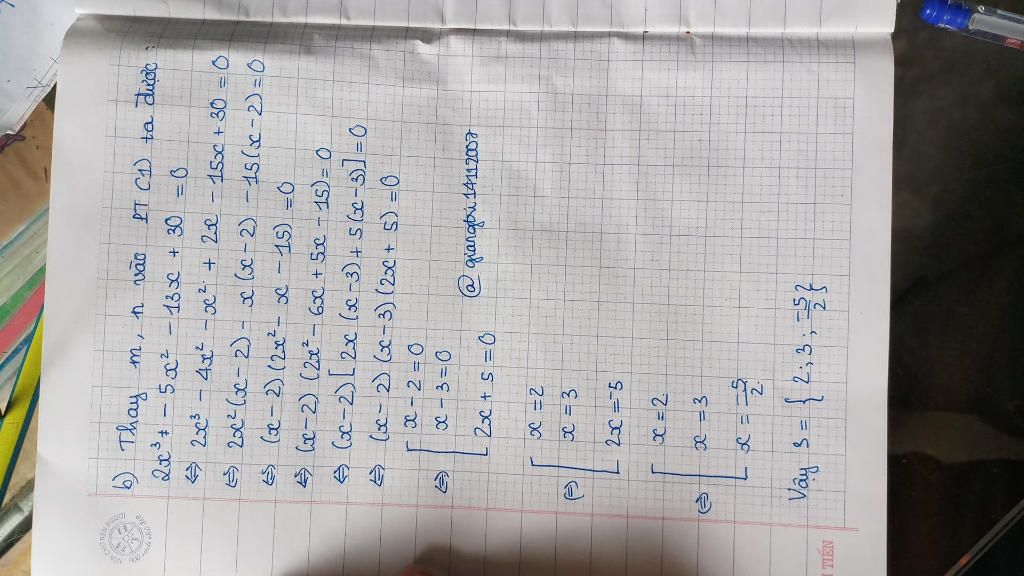 b) Thay m, n vào PT (1) ta được:
2x³ - 5x² - 13x + 30 = 0
⇔ 2x³ - 4x² - x² + 2x - 15x + 30 = 0
⇔ 2x²(x-2) - x(x-2) - 15(x-2) = 0
⇔ (x-2)(2x² - x - 15) = 0
⇔ (x-2)(2x² - 6x + 5x - 15) = 0
⇔ (x-2)[2x(x-3) + 5(x-3)] = 0
⇔ (x-2)(x-3)(2x+5) = 0
⇔ [ x-2 = 0
x-3 = 0
2x+5 = 0
@giangbx14112007
⇔ [ x = 2
x = 3
2x = -5
⇔ [ x = 2
x = 3
x = -5/2
Vậy S = {2; 3; -5/2}
TIẾN